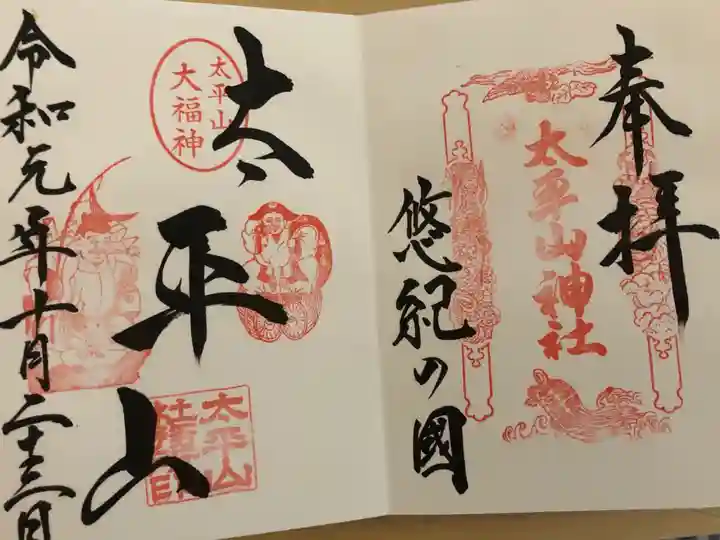 奉拝
太平山神社
悠紀の國
太平山
太平山
大福神
太平山
令和元年十月二十三日